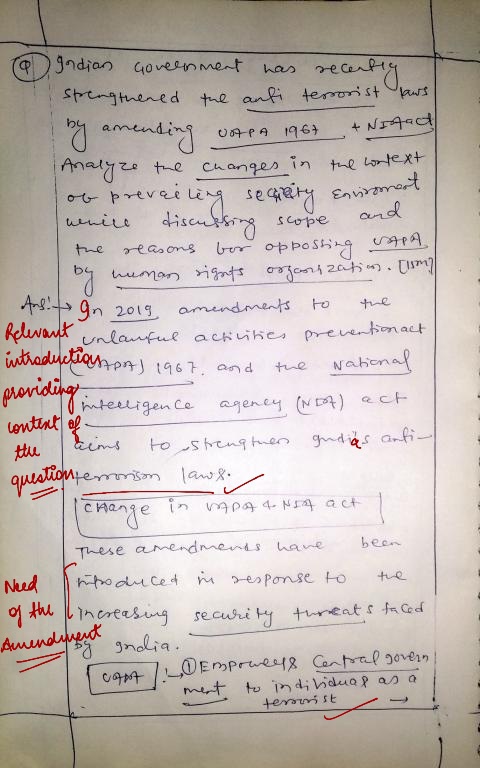 Q Indian Government has recently
strengthened the anti terrorist laws
by amending UAPA 1967 + NIA act
Analyze the changes in the context
of prevailing security Enviroment
while discussing scope and
the reasons for oppossing UAPA
by human rights organization. [15M]
Ans:→ In 2019 amendments to the
unlawful activities prevention act
(UAPA) 1967. and the National
intelligence agency (NIA) act
aims to strengthen India's anti-
terrorism laws.
Relevant
introduction
providing
context of
the
question
Change in UAPA & NIA act
These amendments have been
introduced in response to the
increasing security threats faced
by India.
Need
of the
Amendment
UAPA :→ ① Empowers Central govern
ment to individuas as a
terrorist →